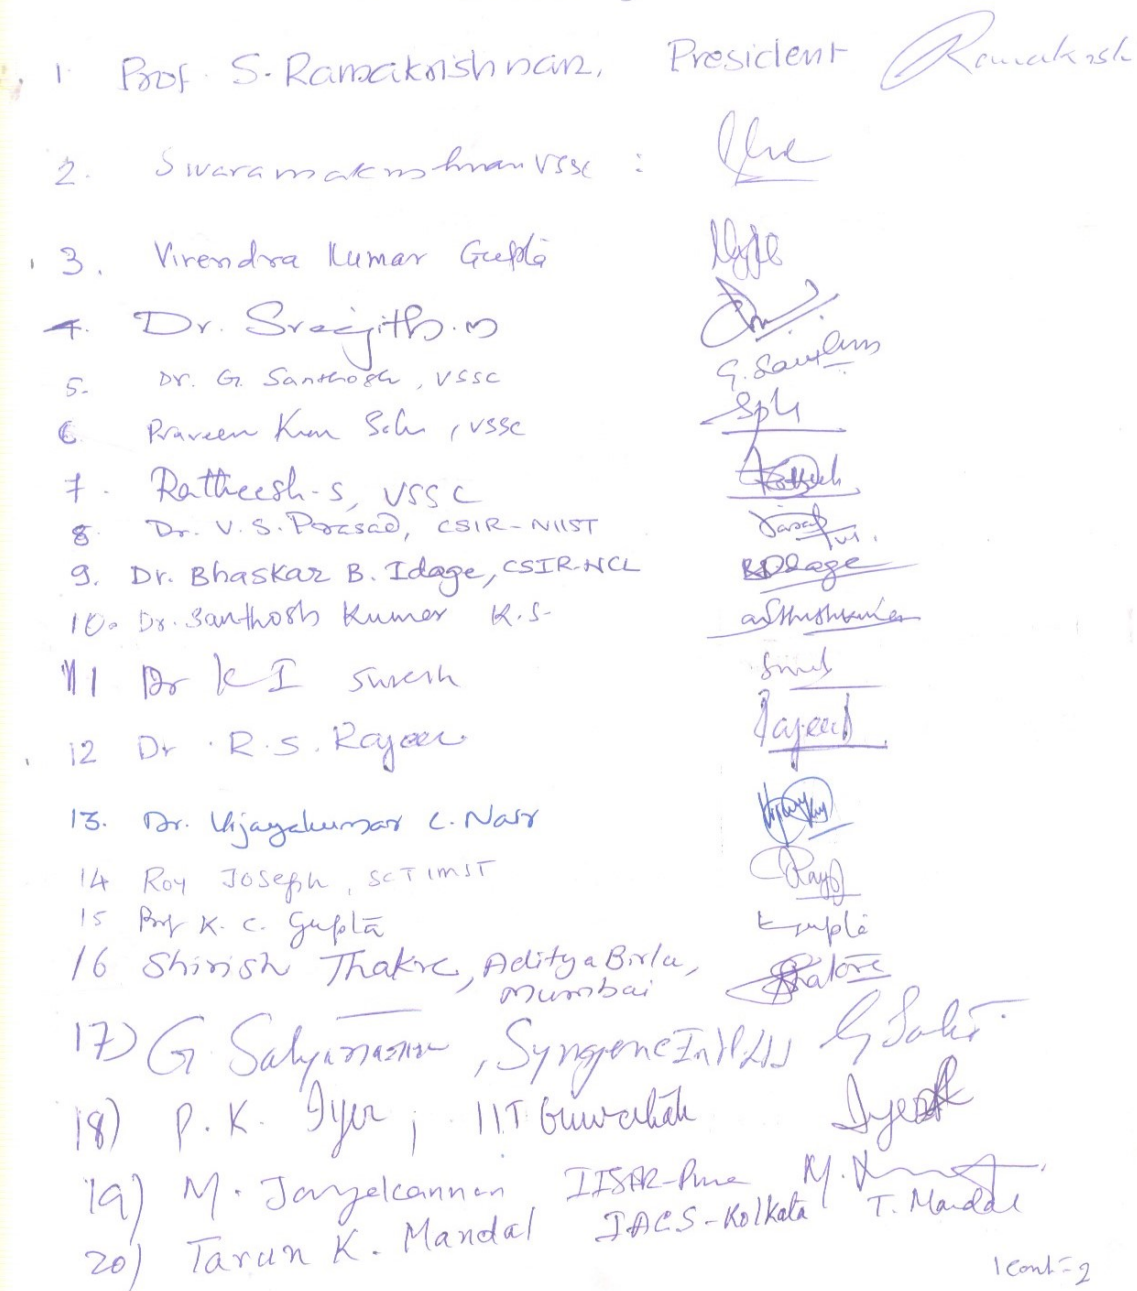 1. Prof. S. Ramakrishnan, President Ramakrish
2. Sivaramakrishnan VSSC :
3. Virendra Kumar Gupta
4. Dr. Sreejith.
5. Dr. G. Santhosh, VSSC G. Santhos
6 Praveen Kum, VSSC
7. Ratheesh-S, VSSC
8 Dr. V. S. Prasad, CSIR-NIIST
9. Dr. Bhaskar B. Idage, CSIR-NCL BBIdage
10. Dr. Santhosh Kumar K.S-
11 Dr K I Suresh
12 Dr. R.S. Rajeev Rajeev
13. Dr. Vijayakumar C. Nair
14 Roy Joseph, SCTIMST Roy
15 Prof K. C. Gupta KGupta
16 Shirish Thakre, Aditya Birla,
Mumbai
17) G Satyanarayan, Syngene
18) P. K. Iyer, IIT Guwahati Iyer
19) M. Jayakannan IISER-Pune M.
20) Tarun K. Mandal IACS-Kolkata T. Mandal